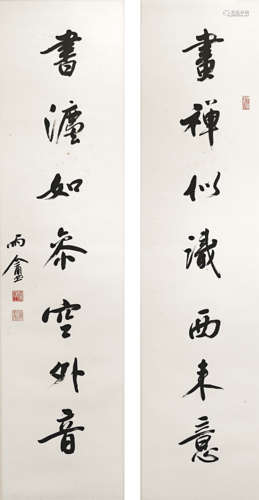 畫禪似識西來意
書濃如參空外音
雨盦